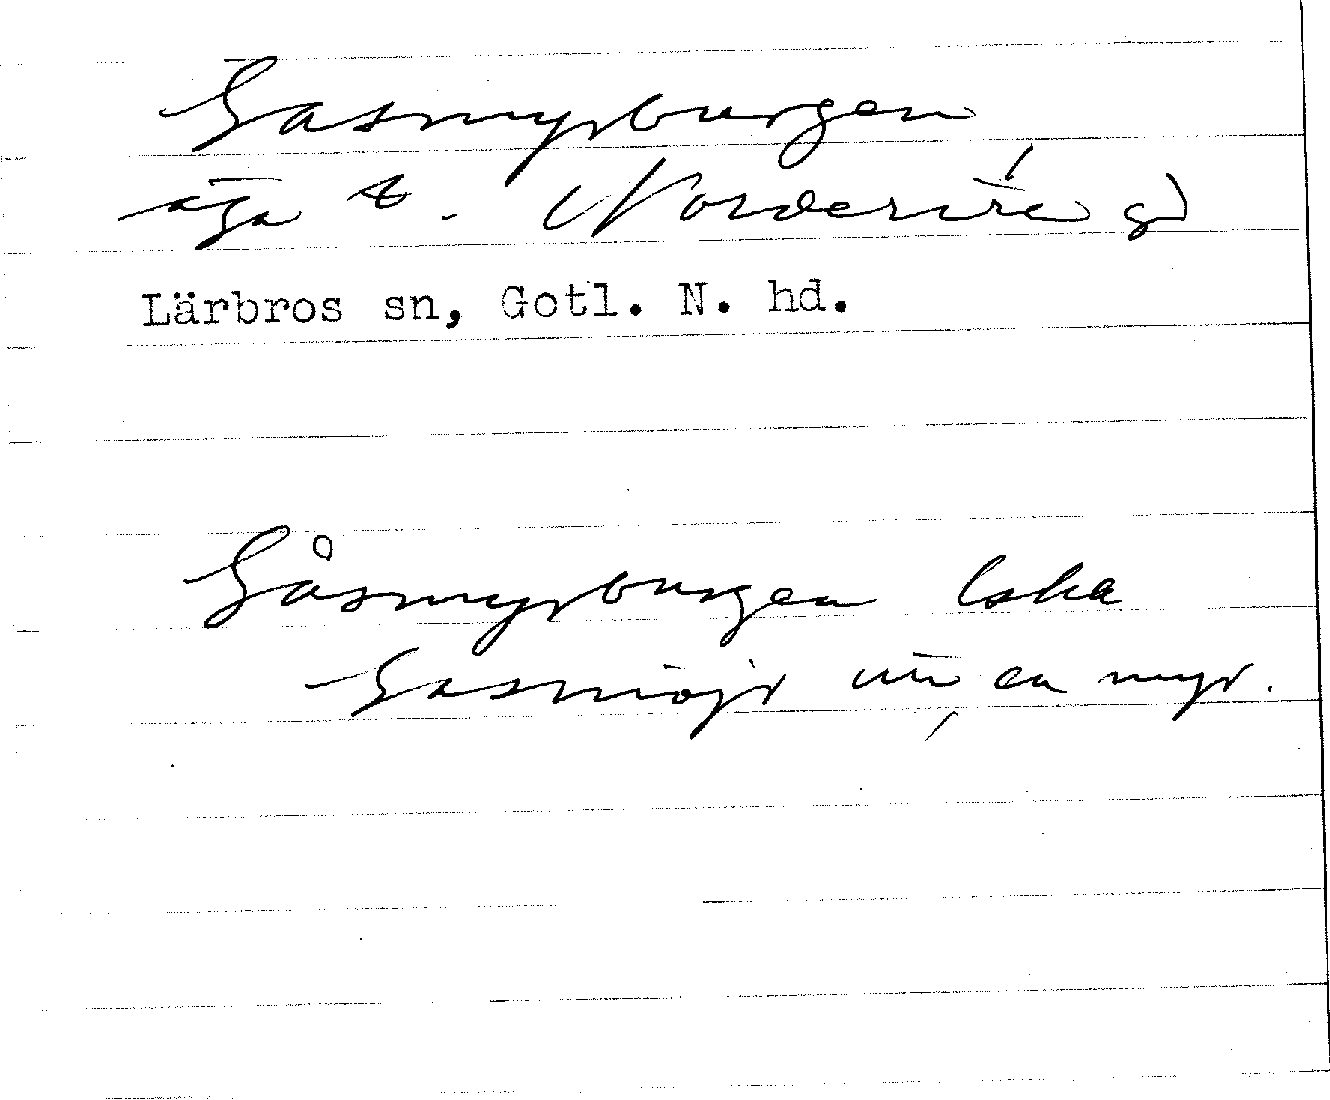 Gasmyrburgen
äga t. Norderire gd
Lärbros sn, Gotl. N. hd.
Gåsmyrburgen
Gasmiojr en myr.